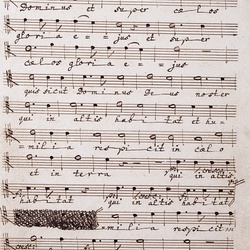 Dominus et super celos
gloria e = = jus et super
celos gloria e = = jus
quis sicut Dominus Deus noster
qui in altis habitat et hu =
= milia respicit in celo
et in terra qui in altis
habitat qui in altis habitat
= milia respicit in